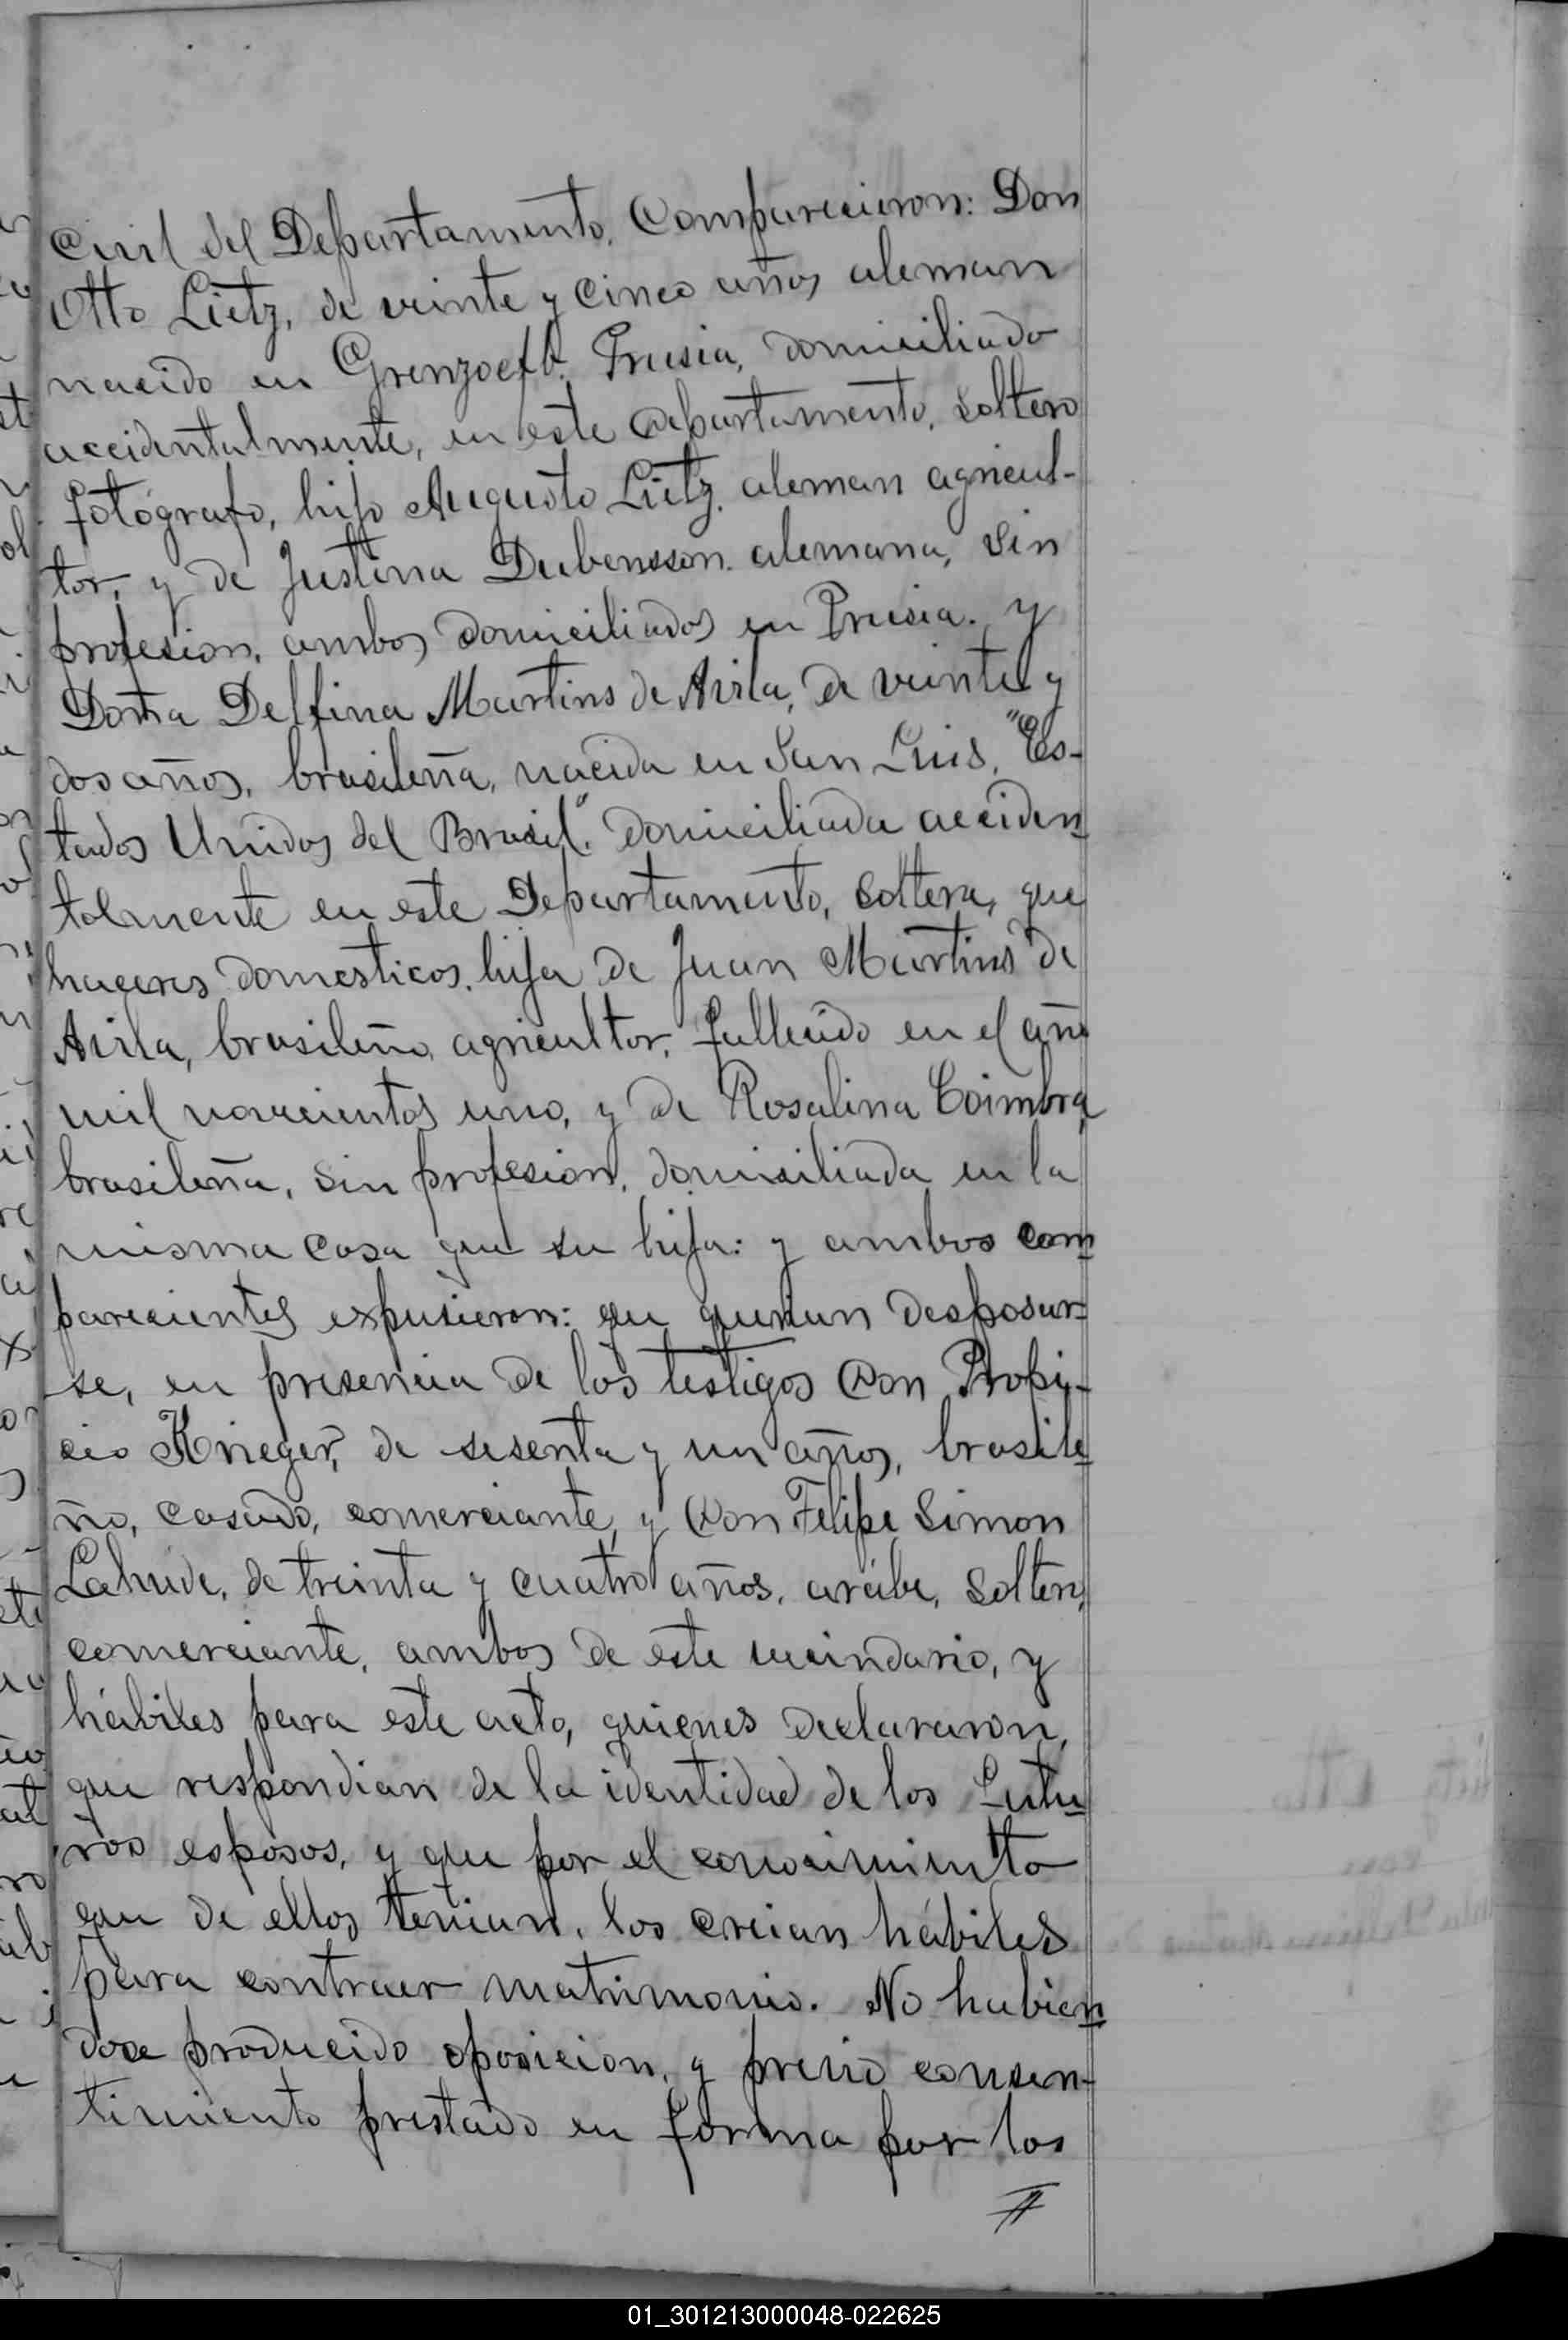 Civil del Departamento, Comparecieron: Don
Otto Lietz, de veinte y cinco años aleman
nacido en Prusia, domiciliado
accidentalmente, en este departamento, soltero
fotógrafo, hijo Augusto Lietz, aleman agricul-
tor, y de Justina Dubensson, alemana, sin
profesion, ambos domiciliados en Prusia. y
Doña Delfina Martins de Avila, de veinte y
dos años, brasileña, nacida en San Luis, "Es-
tados Unidos del Brasil", domiciliada acciden
talmente en este Departamento, soltera, que
haceres domesticos, hija de Juan Martins de
Avila, brasileño, agricultor, fallecido en el año
mil novecientos uno, y de Rosalina Coimbra,
brasileña, sin profesion, domisiliada en la
misma casa que su hija: y ambos com
parecientes expusieron: que querian desposar-
se, en presencia de los testigos Don Propi-
cio Krieger, de sesenta y un años, brasile
ño, casado, comerciante, y Don Felipe Simon
Lahude, de treinta y cuatro años, arabe, soltero,
comerciante, ambos de este vecindario, y
hábiles para este acto, quienes declararon,
que respondian de la identidad de los futu
ros esposos, y que por el conocimiento
que de ellos tenian, los creian hábiles
para contraer matrimonio. No habien
dose producido oposicion, y previo consen-
timiento prestado en forma por los
01_301213000048-022625